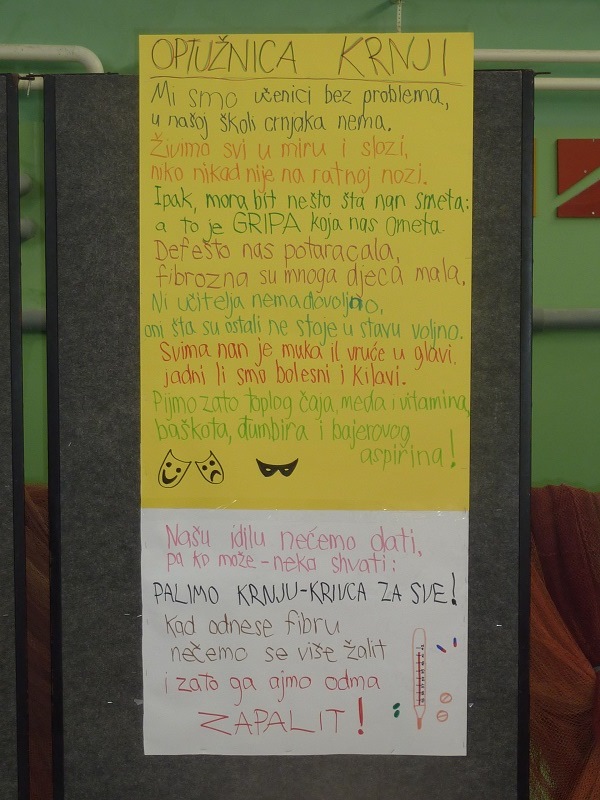 OPTUŽNICA KRNJI
Mi smo učenici bez problema,
u našoj školi crnjaka nema.
Živimo svi u miru i slozi,
niko nikad nije na ratnoj nozi.
Ipak, mora bit nešto šta nan smeta:
a to je GRIPA koja nas ometa.
Defešto nas potaracala,
fibrozna su mnoga djeca mala.
Ni učitelja nema dovoljno,
oni šta su ostali ne stoje u stavu voljno.
Svima nan je muka il vruće u glavi.
jadni li smo bolesni i kilavi.
Pijmo zato toplog čaja, meda i vitamina,
baškota, đumbira i bajerovog
aspirina!
Našu idilu nećemo dati,
pa ko može-neko shvati:
PALIMO KRNJU-KRIVCA ZA SVE!
Kad odnese fibru
nećemo se više žalit
i zato ga ajmo odma
ZAPALIT!